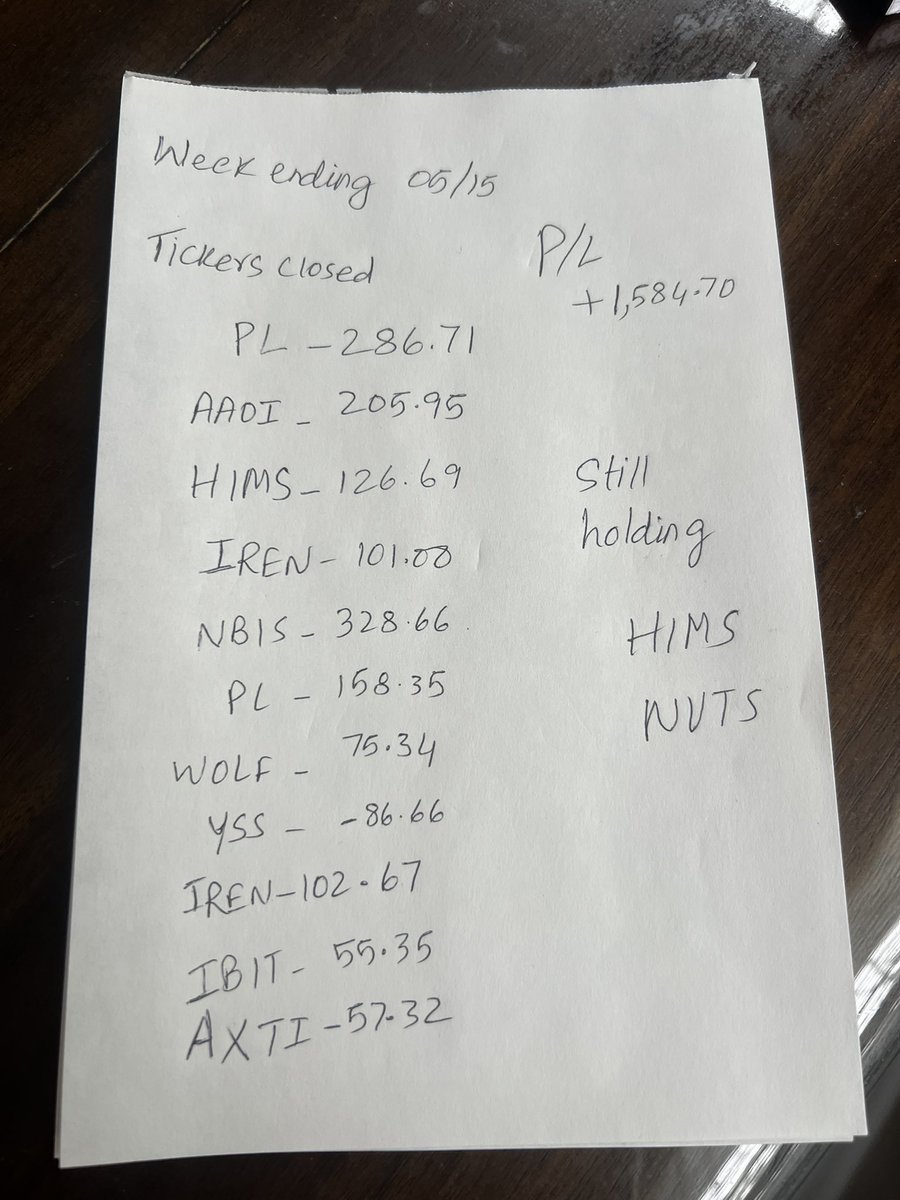 Week ending 05/15
Tickers closed
PL - 286.71
AAOI - 205.95
HIMS - 126.69
IREN - 101.08
NBIS - 328.66
PL - 158.35
WOLF - 75.34
YSS - -86.66
IREN - 102.67
IBIT - 55.35
AXTI - 57.32
P/L
+1,584.70
Still
holding
HIMS
NVTS